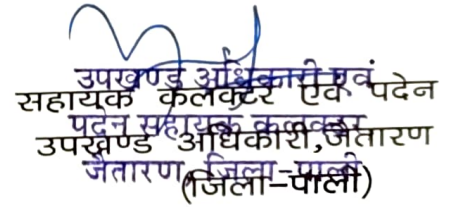 उपखण्ड अधिकारी एवं
सहायक कलक्टर एवं पदेन
पदेन सहायक कलक्टर
उपखण्ड अधिकारी, जैतारण
जैतारण, जिला-पाली
(जिला-पाली)